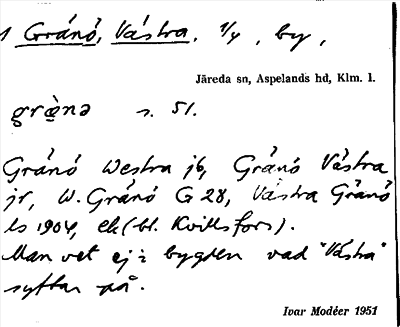 1 Gránó, Västra. 1/4, by,
Järeda sn, Aspelands hd, Klm. l.
grɑ̀:nə s. 51.
Gránó Westra jb, Gránó Västra
jr, W. Gránó G 28, Västra Gränö
ls 1904, ek (bl. Kvillsfors).
Man vet ej i bygden vad "Västra"
syftar på.
Ivar Modéer 1951